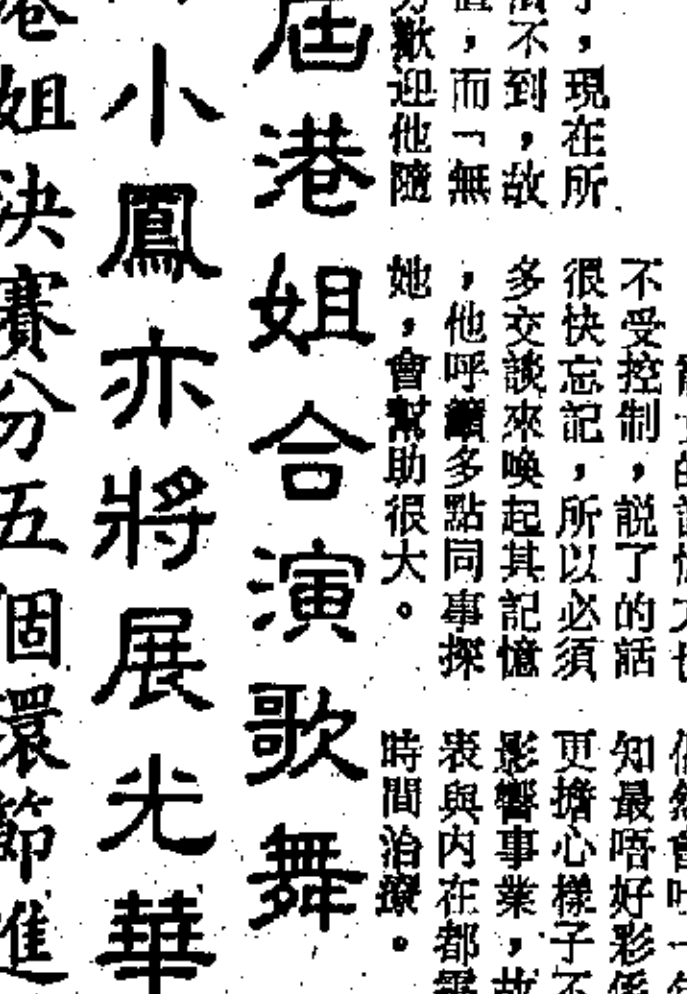 ,現在所
不到,故
,而「無
歡迎他隨
不受控制,説了的話
很快忘記,所以必須
多交談來喚起其記憶
,他呼籲多點同事探
她,會幫助很大。
知最唔好彩係
更擔心樣子不
影響事業,故
表與内在都需
時間治療。
屆港姐合演歌舞
小鳳亦將展光華
港姐決賽分五個環節進